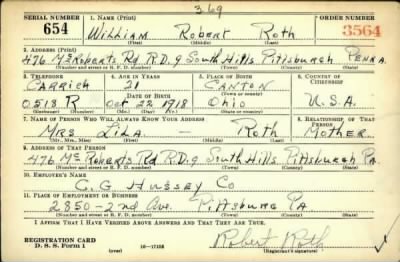 369
SERIAL NUMBER 1. NAME (Print) ORDER NUMBER
654 William Robert Roth 3564
(First) (Middle) (Last)
2. ADDRESS (Print)
476 McRoberts Rd R.D. 9 South Hills Pittsburgh Penna
(Number and street or R. F. D. number) (Town) (County) (State)
3. TELEPHONE 4. AGE IN YEARS 5. PLACE OF BIRTH 6. COUNTRY OF CITIZENSHIP
Carrick 21 Canton
DATE OF BIRTH (Town or county)
0513 R Oct 23 1918 Ohio U.S.A.
(Exchange) (Number) (Mo.) (Day) (Yr.) (State or country)
7. NAME OF PERSON WHO WILL ALWAYS KNOW YOUR ADDRESS 8. RELATIONSHIP OF THAT PERSON
Mrs Lila — Roth Mother
(Mr., Mrs., Miss) (First) (Middle) (Last)
9. ADDRESS OF THAT PERSON
476 McRoberts Rd R.D.9 South Hills Pittsburgh Pa
(Number and street or R. F. D. number) (Town) (County) (State)
10. EMPLOYER'S NAME
C. G. Hussey Co
11. PLACE OF EMPLOYMENT OR BUSINESS
2850 - 2nd Ave. Pittsburg Pa
(Number and street or R. F. D. number) (Town) (County) (State)
I AFFIRM THAT I HAVE VERIFIED ABOVE ANSWERS AND THAT THEY ARE TRUE.
REGISTRATION CARD
D. S. S. Form 1 (over) 16—17105 Robert Roth